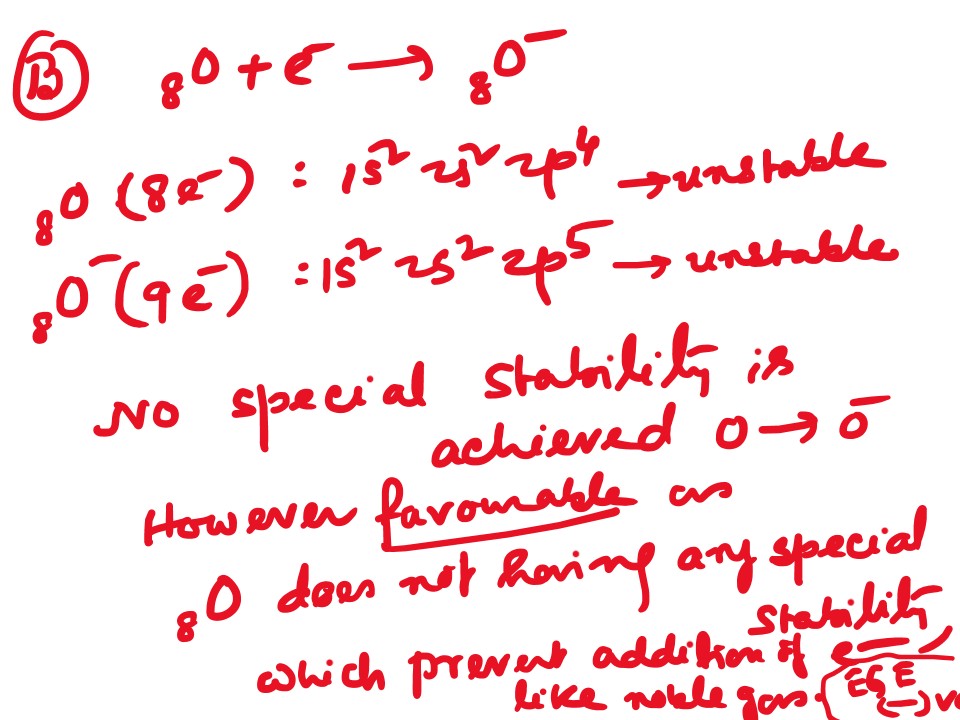 B ₈O + e⁻ → ₈O⁻
₈O (8e⁻) : 1s² 2s² 2p⁴ → unstable
₈O⁻ (9e⁻) : 1s² 2s² 2p⁵ → unstable
No special stability is
achieved O → O⁻
However favourable as
₈O does not having any special
stability
which prevent addition of e⁻
like noble gas. (EGE
(–)v